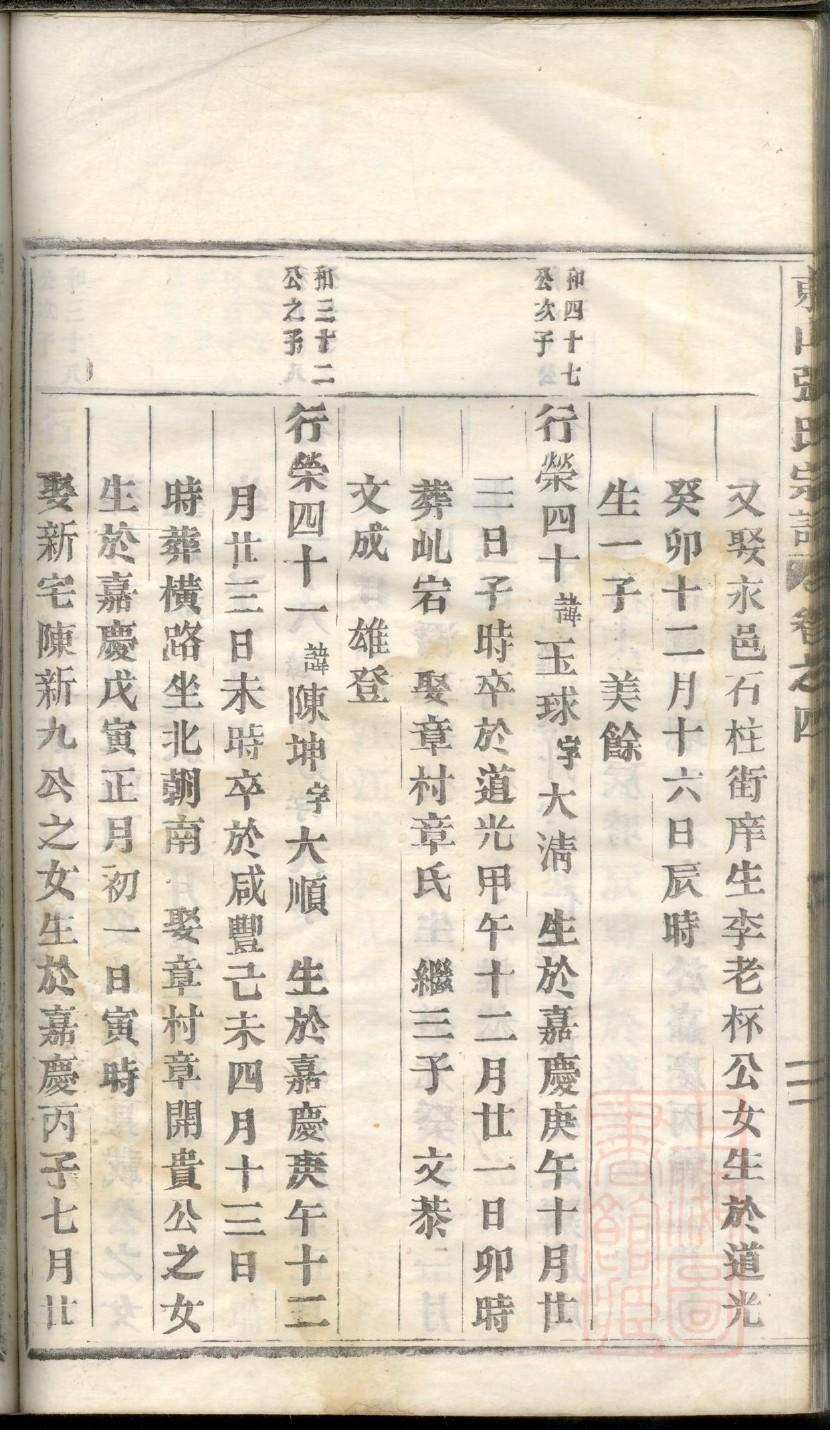 張氏宗譜 卷之四
又娶永邑石柱街庠生李老杯公女生於道光
癸卯十二月十六日辰時
生一子 美餘
和四十七
公次子
行榮四十諱玉球字大清 生於嘉慶庚午十月廿
三日子時卒於道光甲午十二月廿一日卯時
葬乢宕 娶章村章氏生繼三子 文恭
文成 雄登
和三十二
公之子
行榮四十一諱陳坤字大順 生於嘉慶庚午十二
月廿三日未時卒於咸豐己未四月十三日
時葬橫路坐北朝南 娶章村章開貴公之女
生於嘉慶戊寅正月初一日寅時
娶新宅陳新九公之女生於嘉慶丙子七月廿